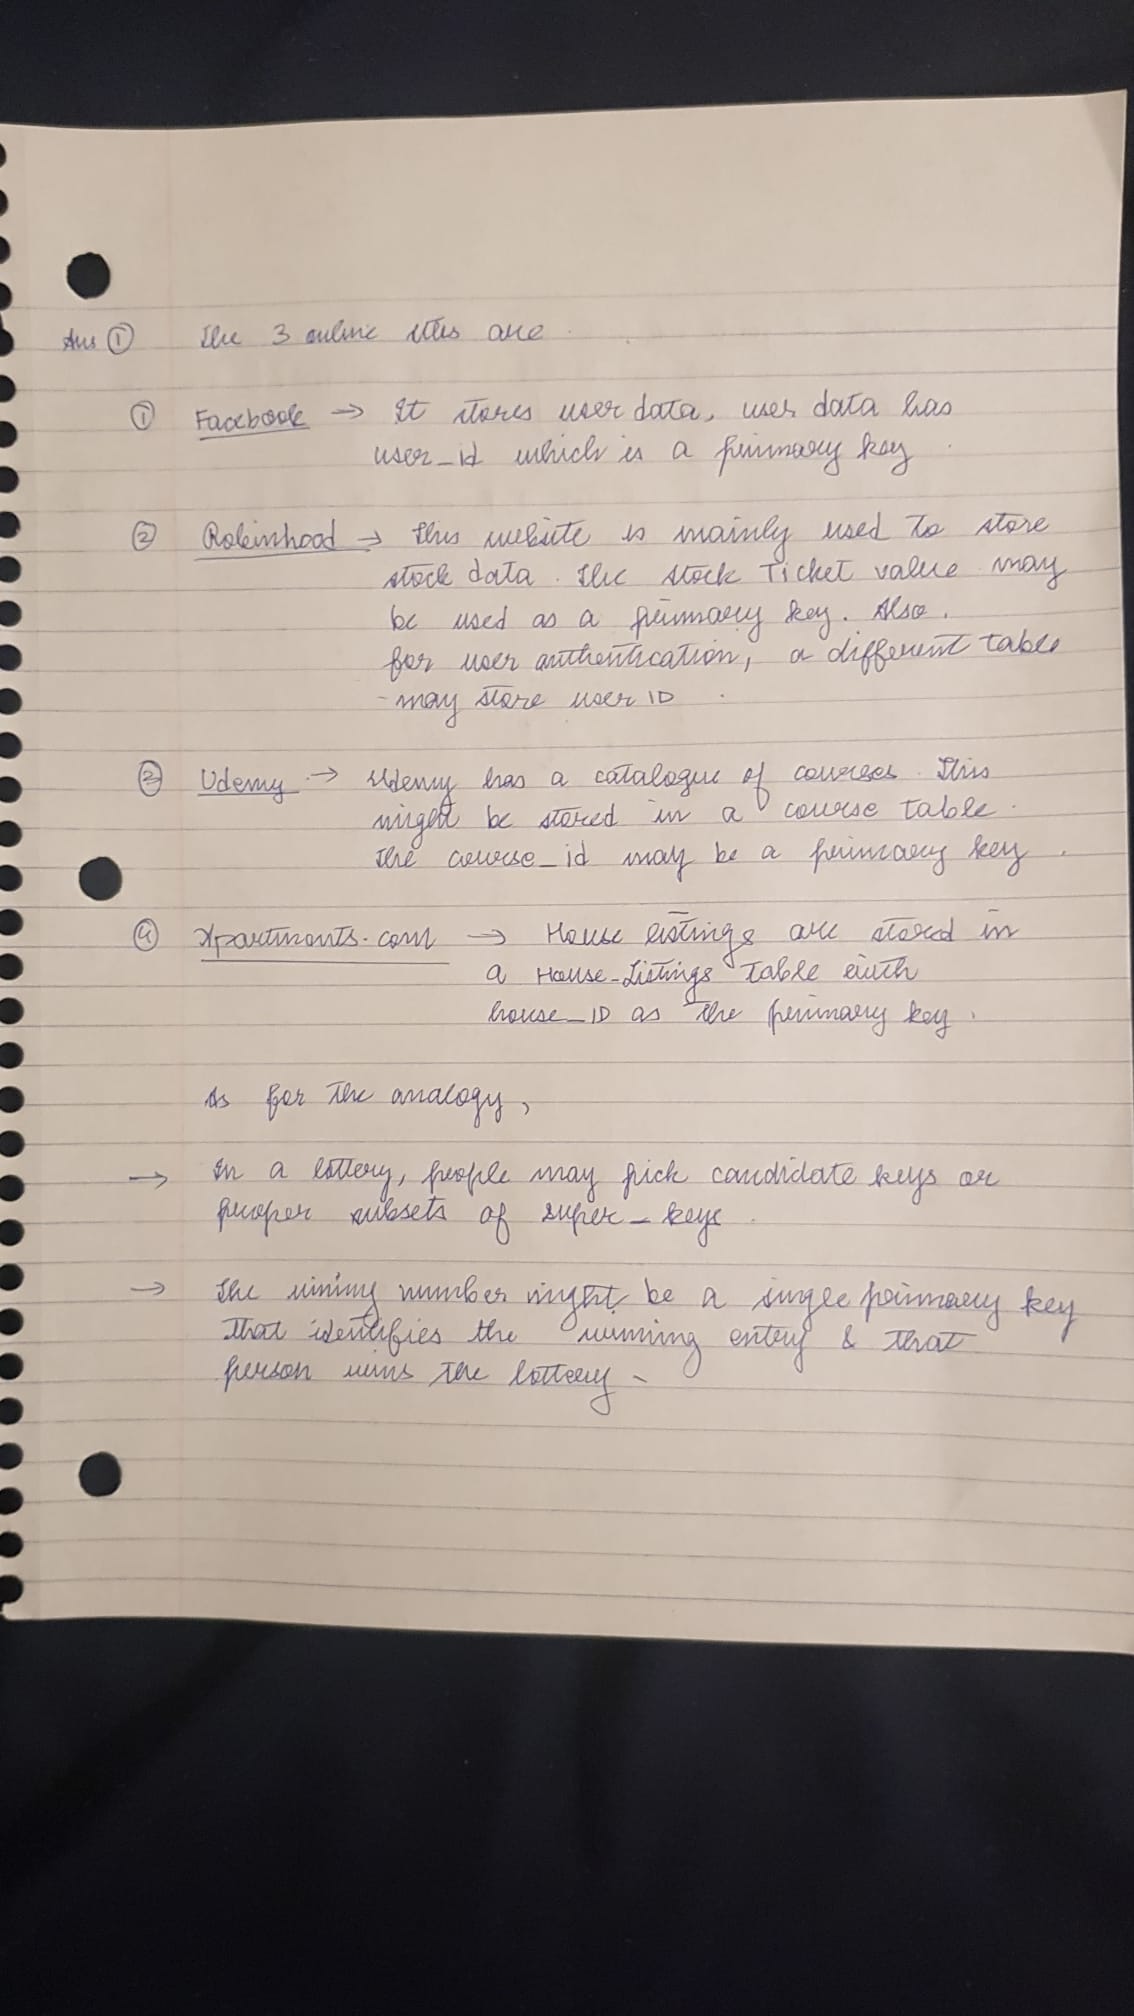 Ans ① The 3 online sites are.
① Facebook → It stores user data, user data has
user_id which is a primary key.
② Robinhood → This website is mainly used to store
stock data. The stock Ticket value may
be used as a primary key. Also,
for user authentication, a different table
may store user ID.
③ Udemy → Udemy has a catalogue of courses. This
might be stored in a course table.
The course_id may be a primary key.
④ Apartments.com → House listings are stored in
a House_Listings Table with
house_ID as the primary key.
As for the analogy,
→ In a lottery, people may pick candidate keys or
proper subsets of super-keys.
→ The wining number might be a single primary key
that identifies the winning entry & that
person wins the lottery.